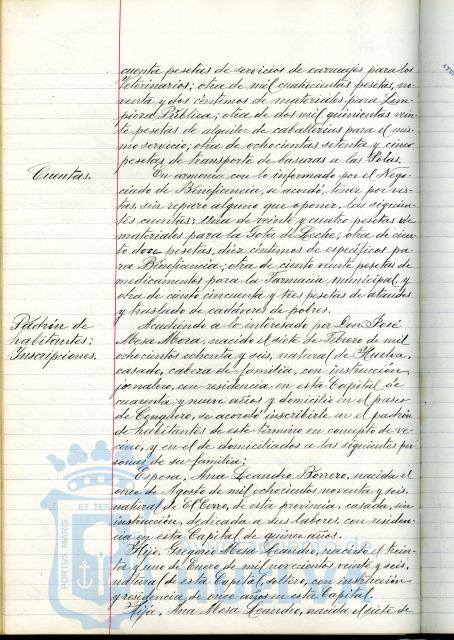 cuenta pesetas de servicios de carruajes para los
Veterinarios; otra de mil cuatrocientas pesetas, no-
venta y dos céntimos de materiales para Lim-
pieza Pública; otra de dos mil quinientas vein-
te pesetas de alquiler de caballerías para el mis-
mo servicio; otra de ochocientas setenta y cinco
pesetas de transporte de basuras a las
Cuentas.
En armonía con lo informado por el Nego-
ciado de Beneficencia, se acordó, tener por vis-
tas, sin reparo alguno que oponer, las siguien-
tes cuentas: Una de veinte y cuatro pesetas de
materiales para la Gota de Leche; otra de cien-
to doce pesetas, diez céntimos de específicos pa-
ra Beneficencia; otra de ciento veinte pesetas de
medicamentos para la Farmacia municipal y
otra de ciento cincuenta y tres pesetas de ataudes
y traslado de cadáveres de pobres.
Padrón de
habitantes:
Inscripciones.
Accediendo a lo interesado por Don José
Mesa Mora, nacido el siete de Febrero de mil
ochocientos ochenta y seis, natural de Huelva,
casado, cabeza de familia, con instrucción,
jornalero, con residencia en esta Capital de
cuarenta y nueve años y domicilio en el paseo
de , se acordó inscribirle en el padrón
de habitantes de este término en concepto de ve-
cino, y en el de domiciliados a las siguientes per-
sonas de su familia:
Esposa, Ana Leandro Borrero, nacida el
once de Agosto de mil ochocientos noventa y seis,
natural de El Cerro, de esta provincia, casada, sin
instrucción, dedicada a sus labores, con residen-
cia en esta Capital de quince años.
Hijo, Gregorio Mesa Leandro, nacido el trein-
ta y uno de Enero de mil novecientos veinte y seis,
natural de esta Capital, soltero, con instrucción
y residencia de once años en esta Capital.
Hija, Ana Mesa Leandro, nacida el siete de
PORTUS MARIS
ET TER
Ayuntamiento de